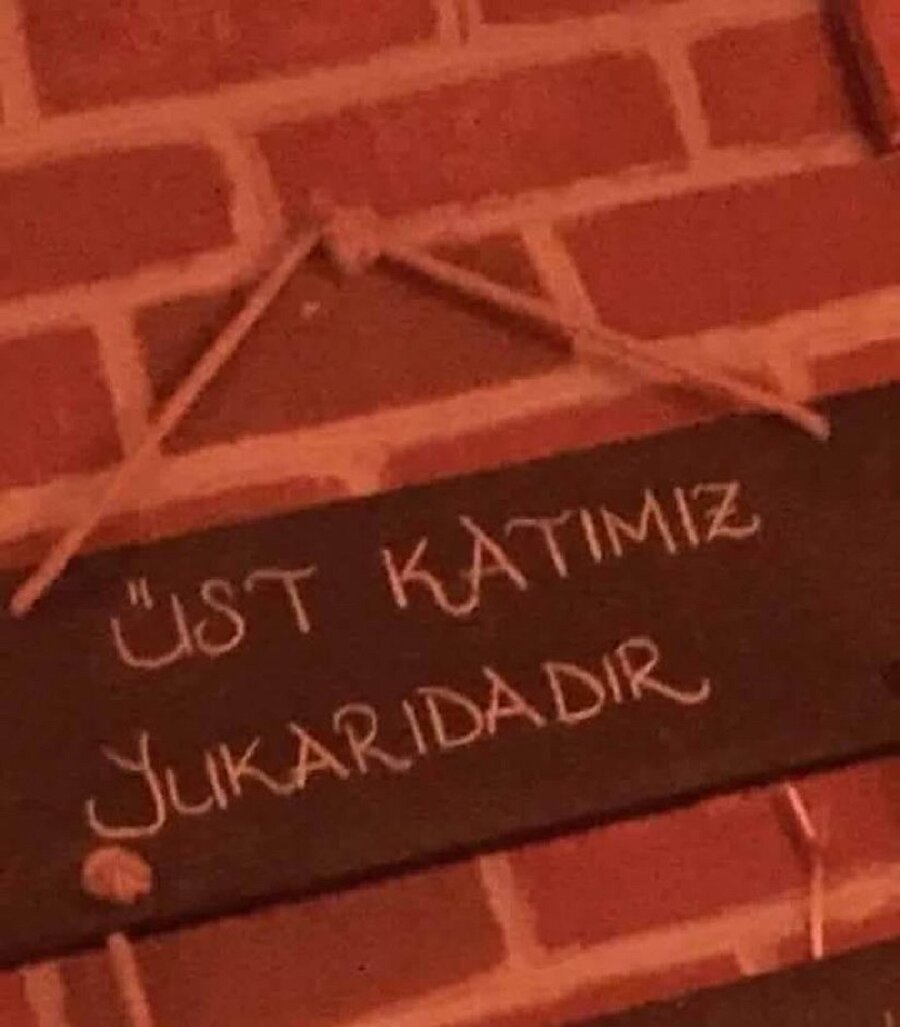 ÜST KATIMIZ
YUKARIDADIR